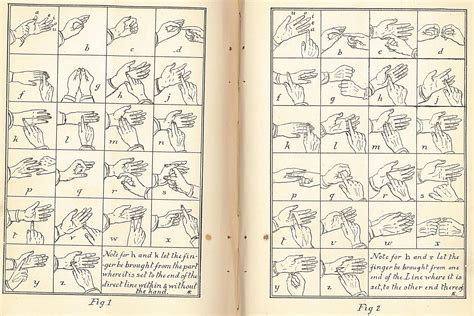 b c .d
f g h j
k l m n
p q r s
t v w x
y z
Note for h and k let the fin-
ger be brought from the part
where it is set to the end of the
direct line within & without
the hand.
Fig 1
u i e a
b c d
f g h j
k l m n
p q r s
t v w x
y z
Note for h and x let the
finger be brought from one
end of the Line where it is
set, to the other end there of
Fig 2